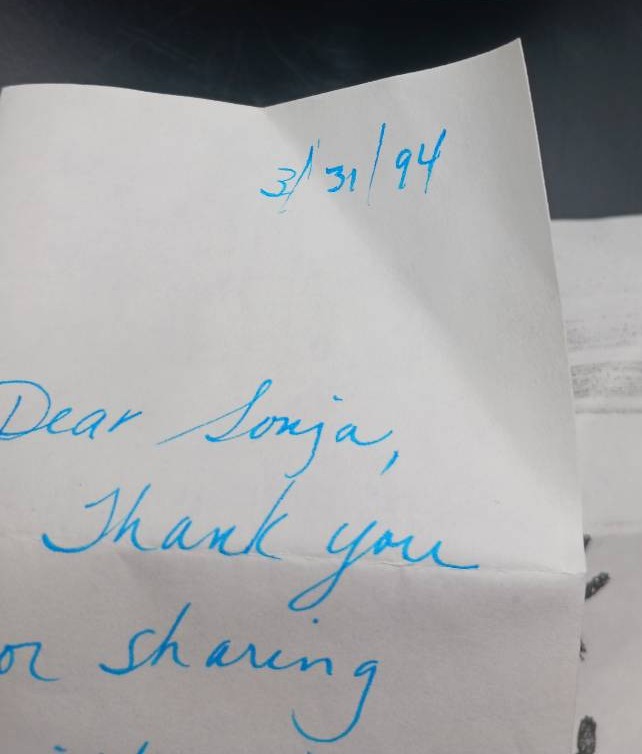 3/31/94
Dear Sonja,
Thank you
or sharing